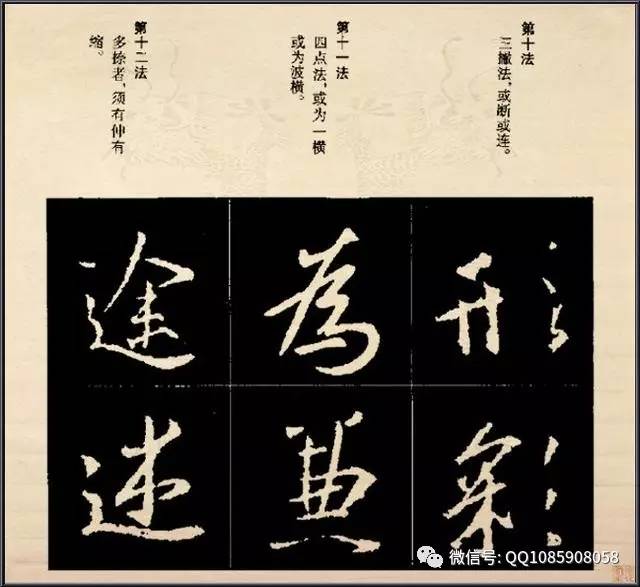 第十法
三撇法，或断或连。
第十一法
四点法，或为一横
或为波横。
第十二法
多捺者，须有伸有
缩。
形
彩
為
途
微信号: QQ1085908058